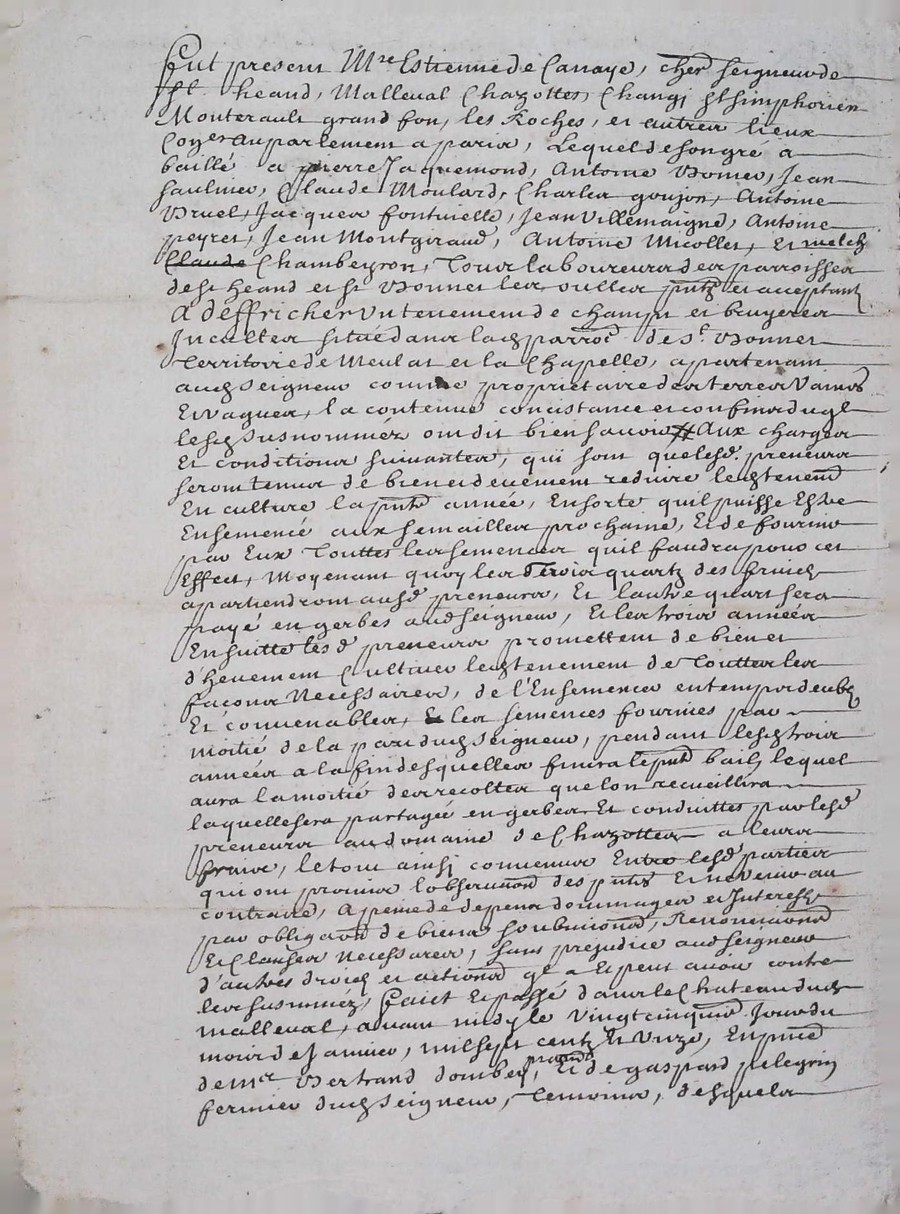 Fut present Mre Estienne de Canaye, cher seigneur de
St heand, Malleval Chazottes, Changi St simphorien
Monterault grand fon, les Roches, et autres lieux
Coyer au parlement a paris, Lequel de son gré a
baillé a pierre Jaquemond, Antoine Bonier, Jean
saulnier, Claude Moulard, Charles goujon, Antoine
Bruel, Jacques fontvielle, Jean Villemaigne, Antoine
peyret, Jean Montgiraud, Antoine Micollet, Et
Claude Chambeyron, Tous laboureurs des parroisses
de St heand et St Bonnet les oulles pnts et acceptants
A deffricher Un tenement de champs et bruyeres
Incultes situé dans lad parroc de St Bonnet
Territoire de Meulas et la Chapelle, apartenant
aud Seigneur comme proprietaire des terres Vaines
Et vagues, la contenue concistance et confins duql
lesd susnommés ont dit bien savoir # Aux charges
Et conditions suivantes, qui sont que lesd preneurs
seront tenus de bien et deuement reduire led tenemt
En culture la pnte année, En sorte quil puisse Estre
Ensemencé aux semailles prochaine, Et de fournir
par Eux Touttes les semences quil faudra pour cet
Effect, Moyenant quoy les Trois quarts des fruicts
apartiendront ausd preneurs, Et l'autre quart sera
payé en gerbes aud seigneur, Et les trois années
Ensuitte lesd preneurs promettent de bien et
d'heuement Cultiver led tenement de Touttes les
façons Necessaires, de l'Ensemencer en temps deubs
Et convenables, Et les semences fournies par
moitié de la part dud Seigneur, pendant lesd trois
années a la fin desquelles finira le pnt bail, lequel
aura la moitié des recoltes que lon recueillira
laquelle sera partagée en gerbes Et conduittes par lesd
preneurs au domaine de Chazottes a leurs
fraix, le tout ainsi convenus Entre lesd parties
qui ont promis lobservaon des pntes Et ne Venir au
contraire, A peine de depens dommages et Interests
par obligaon de biens soubmissions, Renonciaons
Et Clauses Necessaires, sans prejudice aud seigneur
d'autres droits et actions ql a Et peut avoir contre
les susnommés, Faict Et passé dans le Chateau dud
malleval, avant midy le Vingt cinquie Jour du
mois de Janvier, mil sept cents Et Unze, En pnce
de mre Bertrand dombey, praticn Et de gaspard pelegrin
fermier dud Seigneur, Temoins, desquels